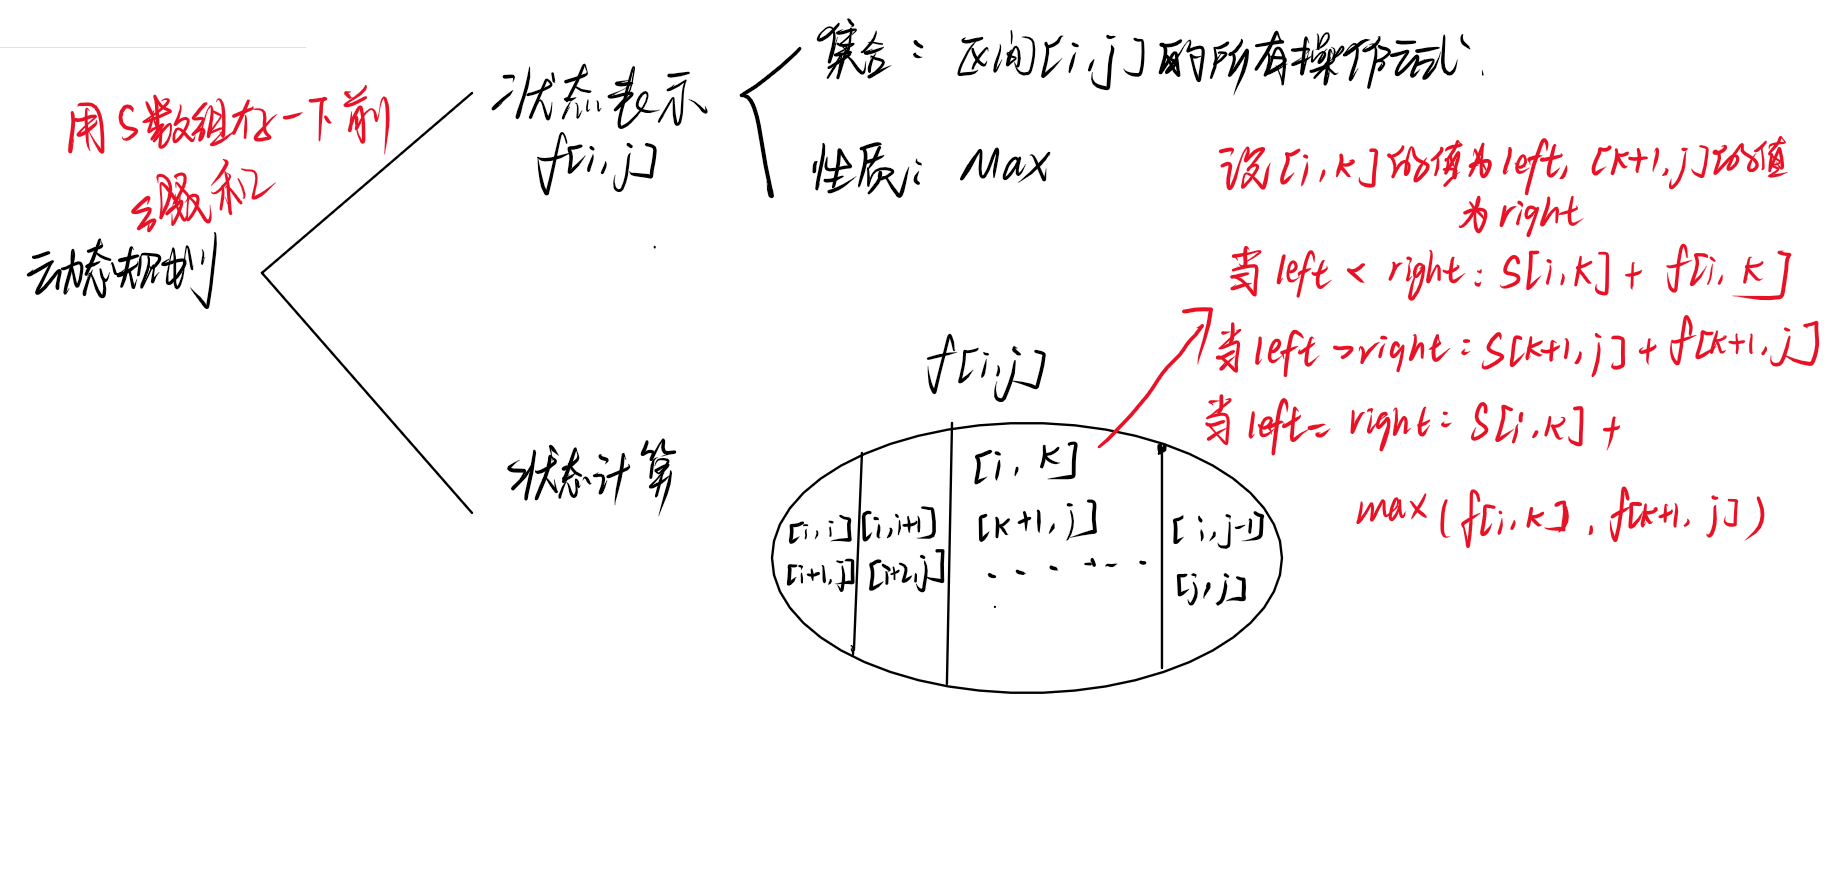 用S数组存一下前
缀和
动态规划
状态表示
f[i,j]
集合：区间[i,j]的所有操作方式.
性质: Max
状态计算
f[i,j]
[i,i]
[i+1,j]
[i,i+1]
[i+2,j]
[i,k]
[k+1,j]
......
[i,j-1]
[j,j]
设[i,k]的值为left,[k+1,j]的值
为right
当left < right: S[i,k] + f[i,k]
当left >right: S[k+1,j] + f[k+1,j]
当left = right: S[i,k] +
max(f[i,k], f[k+1,j])